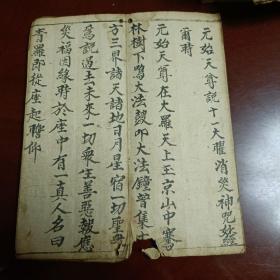 元始天尊說十一大曜消災神咒妙經
爾時
元始天尊在大羅天上玉京山中騫
林樹下鳴大法鼓叩大法鐘普集
方三界諸天諸地日月星宿一切聖眾
為說過去未來一切眾生善惡報應
災福因緣時於座中有一真人名曰
青羅即從座起瞻仰